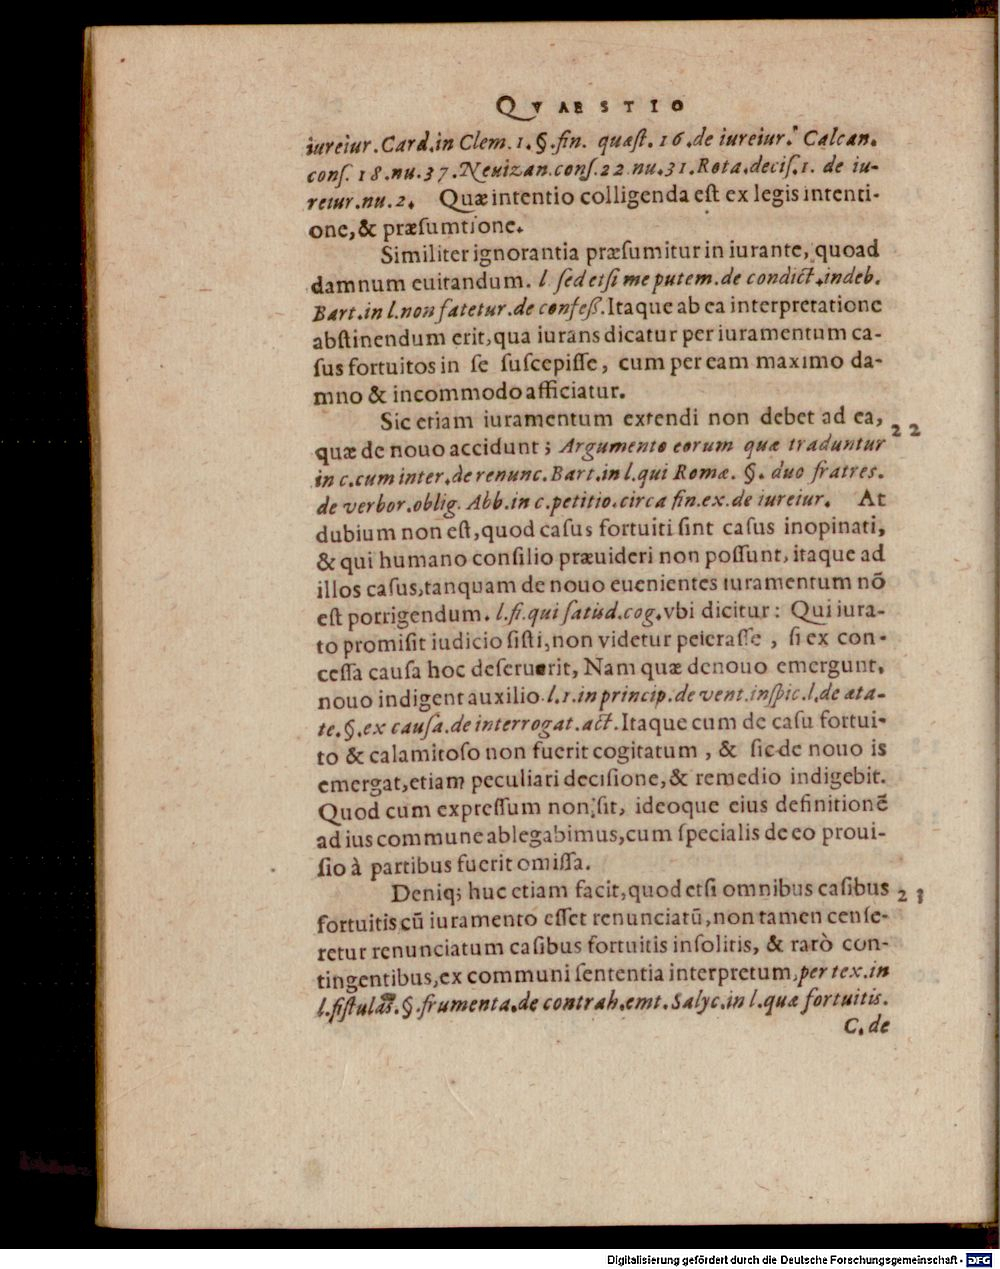 QVAESTIO
iureiur. Card. in Clem. 1. §. fin. quæſt. 16. de iureiur. Calcan.
conſ. 18. nu. 37. Neuizan. conſ. 22 nu. 31. Rota. deciſ. 1. de iu-
reiur. nu. 2. Quæ intentio colligenda eſt ex legis intenti-
one, & præſumtione.
Similiter ignorantia præſumitur in iurante, quoad
damnum euitandum. l ſed etſi me putem. de condict. indeb.
Bart. in l. non fatetur. de confeß. Itaque ab ea interpretatione
abſtinendum erit, qua iurans dicatur per iuramentum ca-
ſus fortuitos in ſe ſuſcepiſſe, cum per eam maximo da-
mno & incommodo afficiatur.
Sic etiam iuramentum extendi non debet ad ea, 22
quæ de nouo accidunt; Argumento eorum quæ traduntur
in c. cum inter. de renunc. Bart. in l. qui Romæ. §. duo fratres.
de verbor. oblig. Abb. in c. petitio. circa fin. ex. de iureiur. At
dubium non eſt, quod caſus fortuiti ſint caſus inopinati,
& qui humano conſilio præuideri non poſſunt, itaque ad
illos caſus, tanquam de nouo euenientes iuramentum nõ
eſt porrigendum. l. ſi. qui ſatiſd. cog. vbi dicitur: Qui iura-
to promiſit iudicio ſiſti, non videtur peieraſſe, ſi ex con-
ceſſa cauſa hoc deſeruerit, Nam quæ denouo emergunt,
nouo indigent auxilio. l. 1. in princip. de vent. inſpic. l. de æta-
te. §. ex cauſa. de interrogat. act. Itaque cum de caſu fortui-
to & calamitoſo non fuerit cogitatum, & ſic de nouo is
emergat, etiam peculiari deciſione, & remedio indigebit.
Quod cum expreſſum non ſit, ideoque eius definitionẽ
ad ius commune ablegabimus, cum ſpecialis de eo proui-
ſio à partibus fuerit omiſſa.
Deniq; huc etiam facit, quod etſi omnibus caſibus 23
fortuitis cũ iuramento eſſet renunciatũ, non tamen cenſe-
retur renunciatum caſibus fortuitis inſolitis, & rarò con-
tingentibus, ex communi ſententia interpretum, per tex. in
l. fiſtulas. §. frumenta. de contrah. emt. Salyc. in l. quæ fortuitis.
C. de
Digitalisierung gefördert durch die Deutsche Forschungsgemeinschaft - DFG